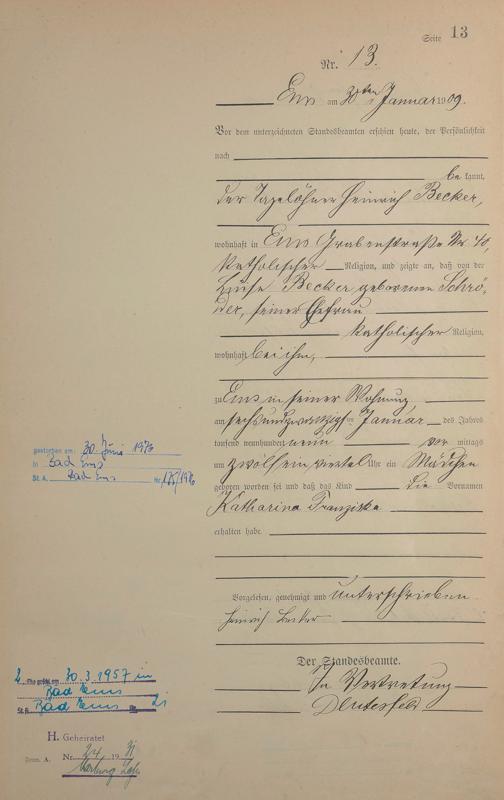 Seite 13
Nr. 13.
Ems am 30ten Januar 1909.
Vor dem unterzeichneten Standesbeamten erschien heute, der Persönlichkeit
nach
be kannt,
der Tagelöhner Heinrich Becker,
wohnhaft in Ems Grabenstraße Nr 40,
katholischer Religion, und zeigte an, daß von der
Luise Becker geborenen Schrö-
der, seiner Ehefrau
katholischer Religion,
wohnhaft bei ihm,
zu Ems in seiner Wohnung
am sechsundzwanzigsten Januar des Jahres
tausend neunhundert neun vor mittags
um zwölf ein viertel Uhr ein Mädchen
geboren worden sei und daß das Kind die Vornamen
Katharina Franziska
erhalten habe.
Vorgelesen, genehmigt und unterschrieben
Heinrich Becker
Der Standesbeamte.
In Vertretung
gestorben am: 30. Juni 1976
in Bad Ems
St. A. Bad Ems Nr. 175/1976
2. Ehe geschl. am 30.3.1957 in
Bad Ems
St. A. Bad Ems Nr. 21
H. Geheiratet
Nr. 24 19 31